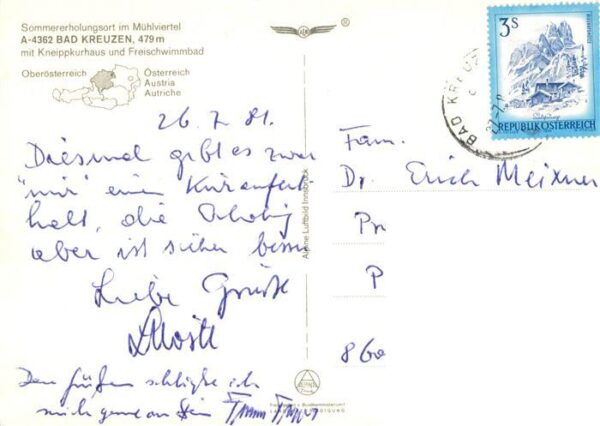 Sommererholungsort im Mühlviertel
A-4362 BAD KREUZEN, 479 m
mit Kneippkurhaus und Freischwimmbad
Oberösterreich
Österreich
Austria
Autriche
®
3 S
REPUBLIK ÖSTERREICH
BAD KREUZ
Alpine Luftbild Innsbruck
26.7.81.
Diesmal gibt es zwar
"nur" einen Kuraufent
halt, die
aber ist sicher
Liebe Grüße
Den Grüßen schließe ich
mich gerne an
Fam.
Dr. Erich Meixner
P